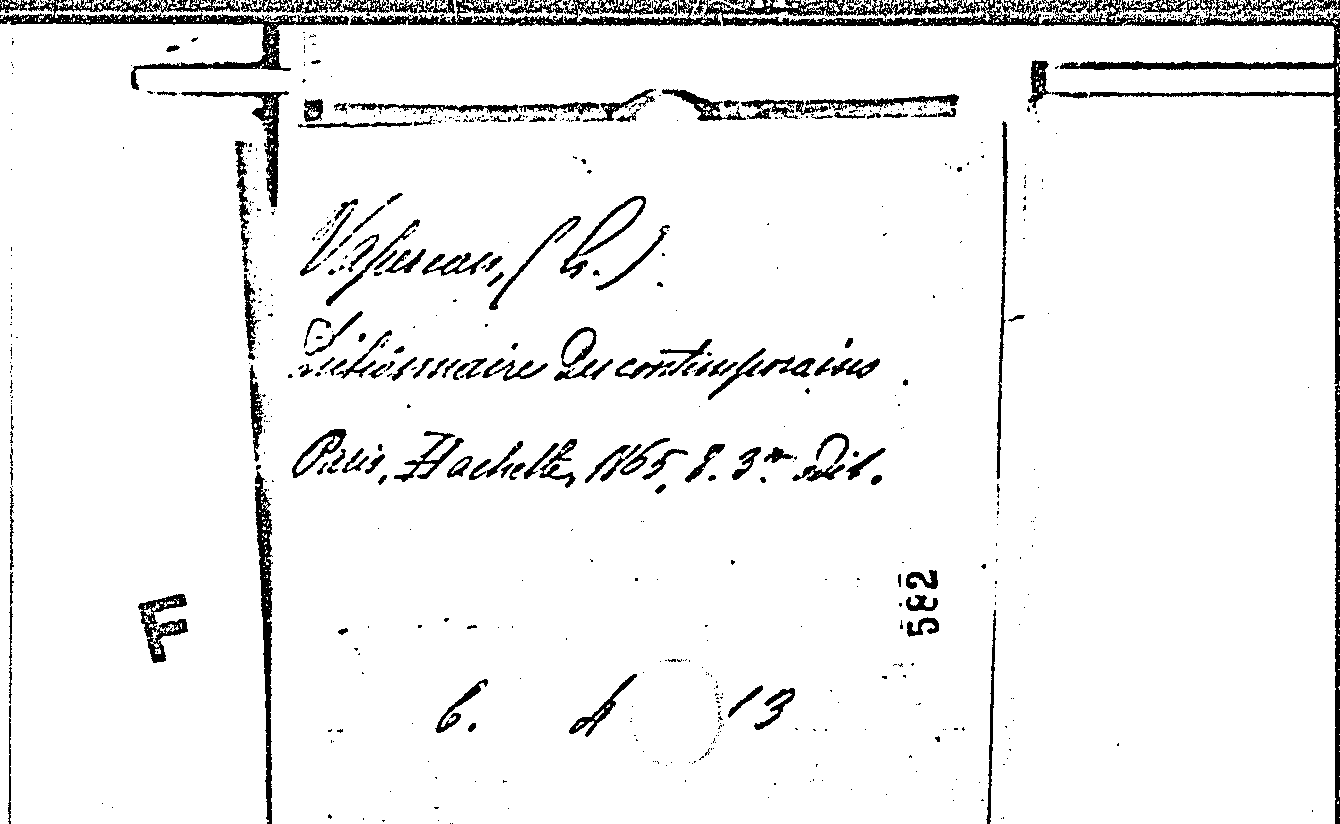 Vapereau, (G.)
Dictionnaire Des contemporains
Paris, Hachette, 1865, 8. 3.me Edit.
F
582
6. 4 13